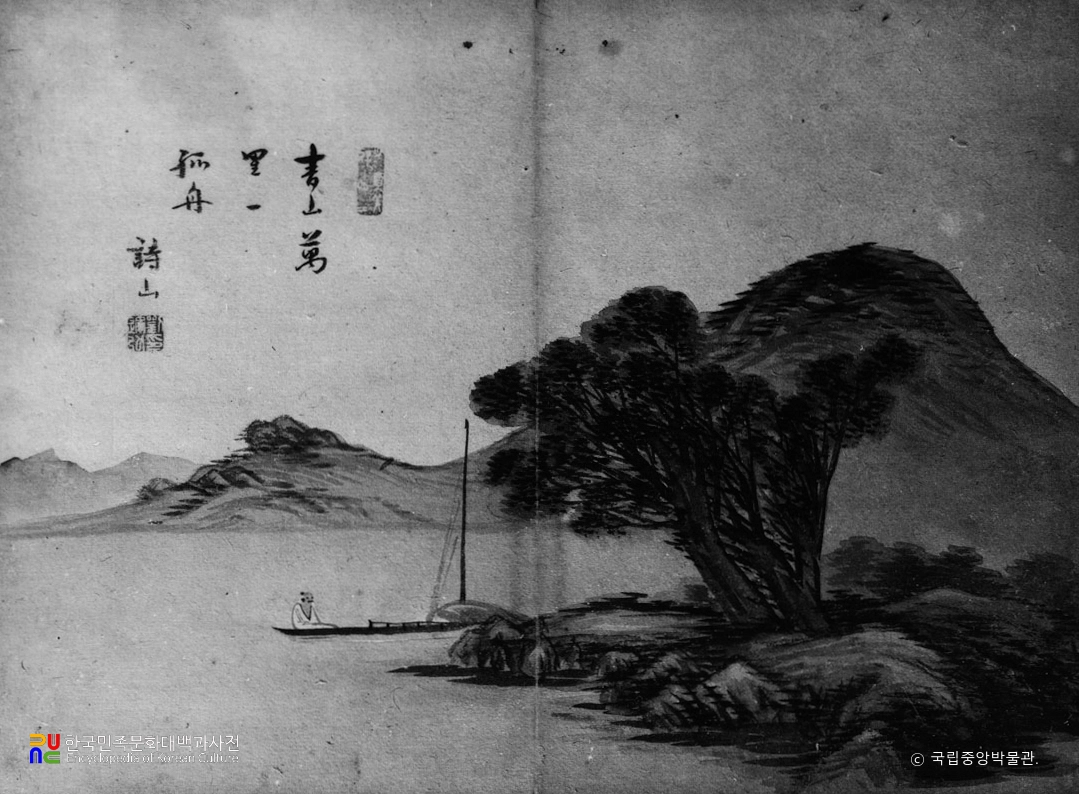 青山萬
里一
孤舟
詩山
한국민족문화대백과사전
Encyclopedia of Korean Culture
© 국립중앙박물관.